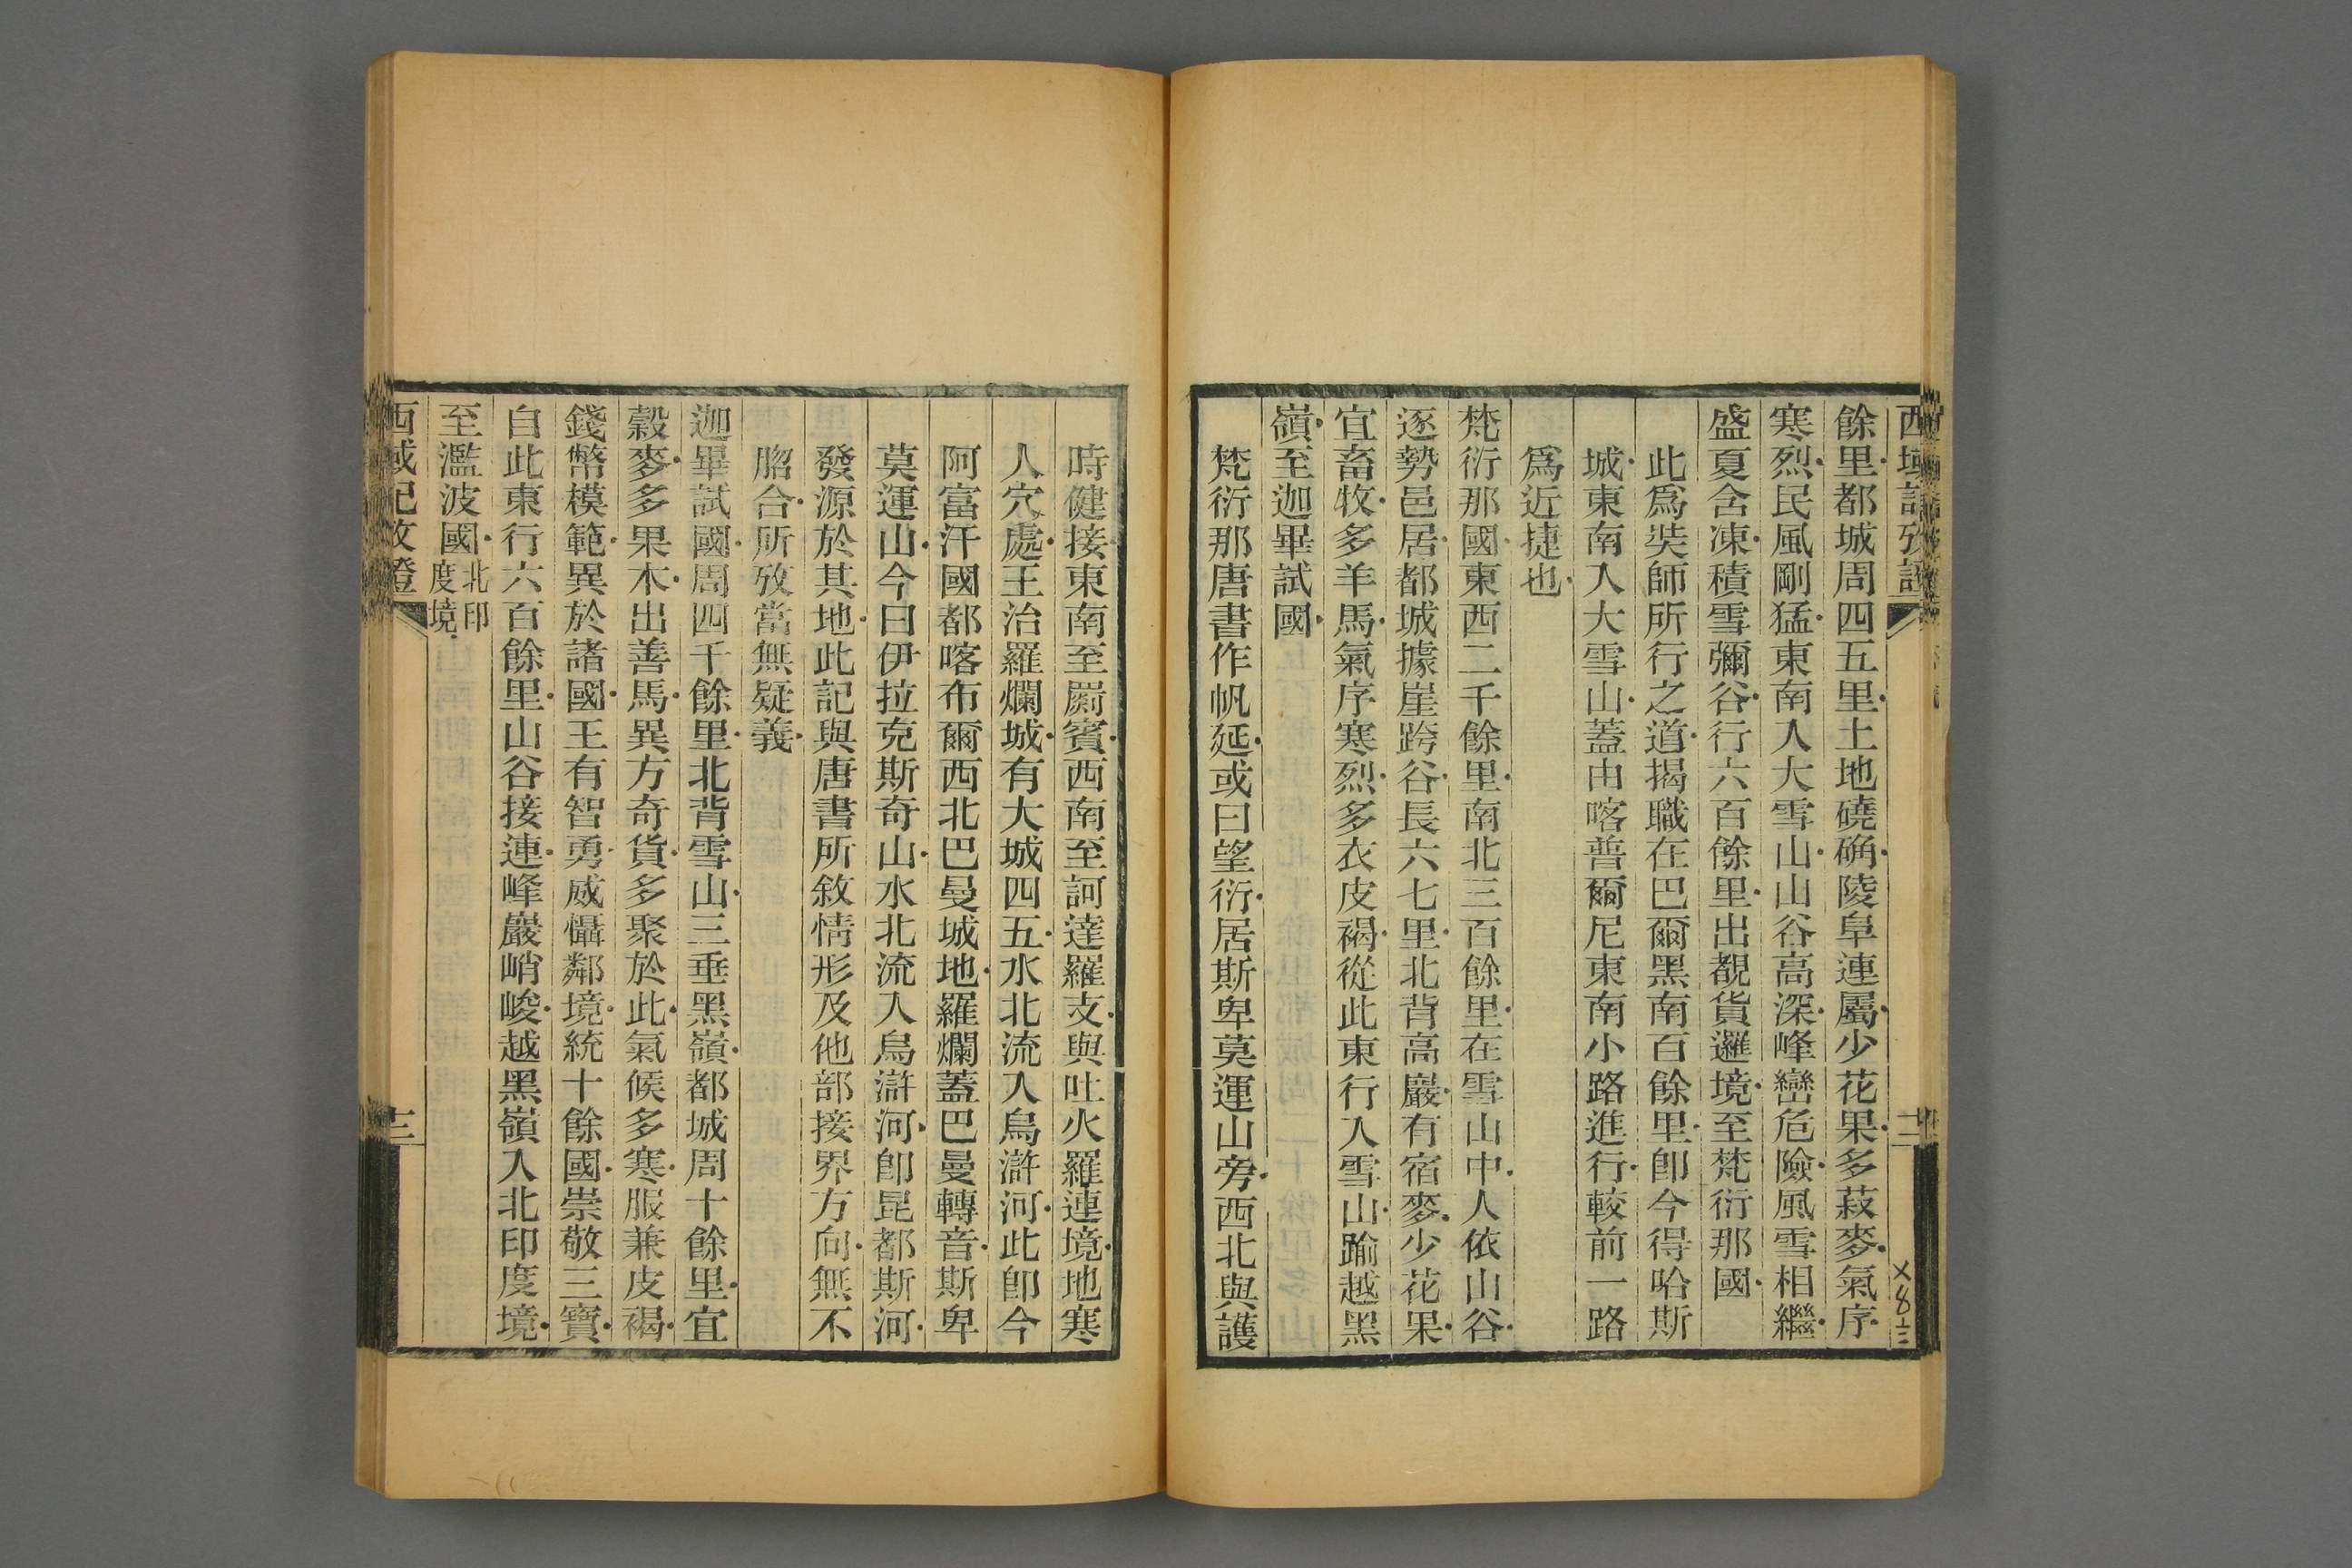 西域記攷證
餘里都城周四五里土地磽确陵阜連屬少花果多菽麥氣序
寒烈民風剛猛東南入大雪山山谷高深峰巒危險風雪相繼
盛夏含凍積雪彌谷行六百餘里出覩貨邏境至梵衍那國
此爲奘師所行之道揭職在巴爾黑南百餘里卽今得哈斯
城東南入大雪山蓋由喀普爾尼東南小路進行較前一路
爲近捷也
梵衍那國東西二千餘里南北三百餘里在雪山中人依山谷
逐勢邑居都城據崖跨谷長六七里北背高巖有宿麥少花果
宜畜牧多羊馬氣序寒烈多衣皮褐從此東行入雪山踰越黑
嶺至迦畢試國
梵衍那唐書作帆延或曰望衍居斯卑莫運山旁西北與護
時健接東南至罽賓西南至訶達羅支與吐火羅連境地寒
人穴處王治羅爛城有大城四五水北流入烏滸河此卽今
阿富汗國都喀布爾西北巴曼城地羅爛蓋巴曼轉音斯卑
莫運山今曰伊拉克斯奇山水北流入烏滸河卽昆都斯河
發源於其地此記與唐書所敘情形及他部接界方向無不
脗合所攷當無疑義
迦畢試國周四千餘里北背雪山三垂黑嶺都城周十餘里宜
穀麥多果木出善馬異方奇貨多聚於此氣候多寒服兼皮褐
錢幣模範異於諸國王有智勇威懾鄰境統十餘國崇敬三寶
自此東行六百餘里山谷接連峰巖峭峻越黑嶺入北印度境
至濫波國北印度境
西域記攷證
十三